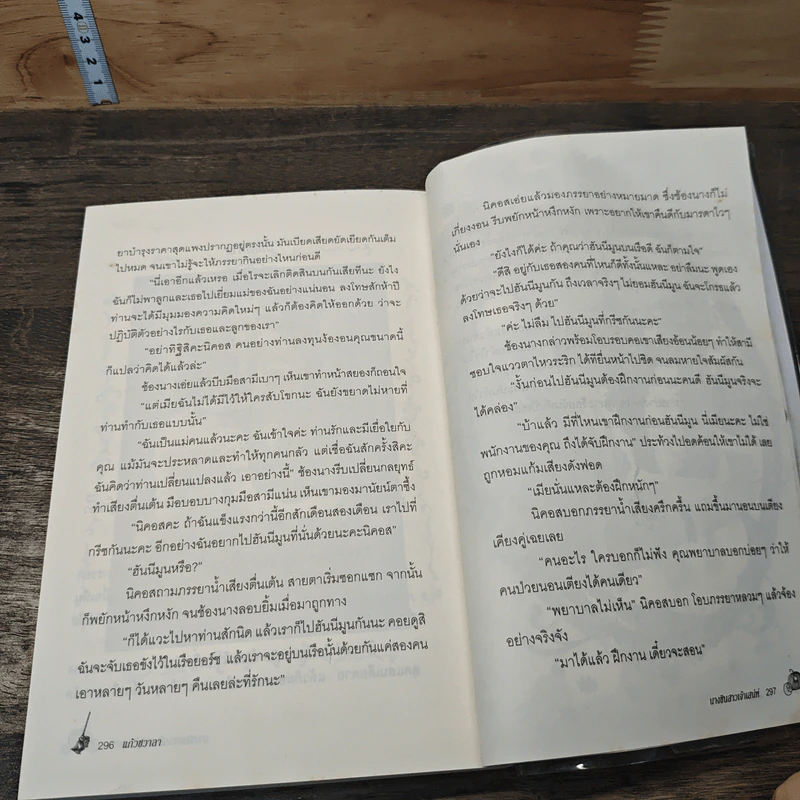 4
3
2
1
ยาบำรุงราคาสุดแพงปรากฏอยู่ตรงนั้น มันเบียดเสียดยัดเยียดกันเต็ม
ไปหมด จนเขาไม่รู้จะให้ภรรยากินอย่างไหนก่อนดี
“นี่เอาอีกแล้วเหรอ เมื่อไรจะเลิกติดสินบนกันเสียทีนะ ยังไง
ฉันก็ไม่พาลูกและเธอไปเยี่ยมแม่ของฉันอย่างแน่นอน ลงโทษสักห้าปี
ท่านจะได้มีมุมมองความคิดใหม่ๆ แล้วก็ต้องคิดให้ออกด้วย ว่าจะ
ปฏิบัติตัวอย่างไรกับเธอและลูกของเรา”
“อย่าทิฐิสิคะนิคอส คนอย่างท่านลงทุนง้องอนคุณขนาดนี้
ก็แปลว่าคิดได้แล้วล่ะ”
ช้องนางเอ่ยแล้วบีบมือสามีเบาๆ เห็นเขาทำหน้าสยองก็ถอนใจ
“แต่เมียฉันไม่ได้มีไว้ให้ใครสับโขกนะ ฉันยังขยาดไม่หายที่
ท่านทำกับเธอแบบนั้น”
“ฉันเป็นแม่คนแล้วนะคะ ฉันเข้าใจค่ะ ท่านรักและมีเยื่อใยกับ
คุณ แม้มันจะประหลาดและทำให้ทุกคนกลัว แต่เชื่อฉันสักครั้งสิคะ
ฉันคิดว่าท่านเปลี่ยนแปลงแล้ว เอาอย่างนี้” ช้องนางรีบเปลี่ยนกลยุทธ์
ทำเสียงตื่นเต้น มือบอบบางกุมมือสามีแน่น เห็นเขามองมานัยน์ตาซึ้ง
“นิคอสคะ ถ้าฉันแข็งแรงกว่านี้อีกสักเดือนสองเดือน เราไปที่
กรีซกันนะคะ อีกอย่างฉันอยากไปฮันนีมูนที่นั่นด้วยนะคะนิคอส”
“ฮันนีมูนหรือ?”
นิคอสถามภรรยาน้ำเสียงตื่นเต้น สายตาเริ่มซอกแซก จากนั้น
ก็พยักหน้าหงึกหงัก จนช้องนางลอบยิ้มเมื่อมาถูกทาง
“ก็ได้แวะไปหาท่านสักนิด แล้วเราก็ไปฮันนีมูนกันนะ คอยดูสิ
ฉันจะจับเธอขังไว้ในเรือยอร์ช แล้วเราจะอยู่บนเรือนั้นด้วยกันแค่สองคน
เอาหลายๆ วันหลายๆ คืนเลยล่ะที่รักนะ”
296 แก้วชวาลา
นิคอสเอ่ยแล้วมองภรรยาอย่างหมายมาด ซึ่งช้องนางก็ไม่
เกี่ยงงอน รีบพยักหน้าหงึกหงัก เพราะอยากให้เขาคืนดีกับมารดาไวๆ
นั่นเอง
“ยังไงก็ได้ค่ะ ถ้าคุณว่าฮันนีมูนบนเรือดี ฉันก็ตามใจ”
“ดีสิ อยู่กับเธอสองคนที่ไหนก็ดีทั้งนั้นแหละ อย่าลืมนะ พูดเอง
ด้วยว่าจะไปฮันนีมูนกัน ถึงเวลาจริงๆ ไม่ยอมฮันนีมูน ฉันจะโกรธแล้ว
ลงโทษเธอจริงๆ ด้วย”
“ค่ะ ไม่ลืม ไปฮันนีมูนที่กรีซกันนะคะ”
ช้องนางกล่าวพร้อมโอบรอบคอเขาเสียงอ้อนน้อยๆ ทำให้สามี
ชอบใจแววตาไหวระริก ได้ทียื่นหน้าไปชิด จนลมหายใจสัมผัสกัน
“งั้นก่อนไปฮันนีมูนต้องฝึกงานก่อนนะคนดี ฮันนีมูนจริงจะ
ได้คล่อง”
“บ้าแล้ว มีที่ไหนเขาฝึกงานก่อนฮันนีมูน นี่เมียนะคะ ไม่ใช่
พนักงานของคุณ ถึงได้จับฝึกงาน” ประท้วงไปอดค้อนให้เขาไม่ได้ เลย
ถูกหอมแก้มเสียงดังฟอด
“เมียนั่นแหละต้องฝึกหนักๆ”
นิคอสบอกภรรยาน้ำเสียงครึกครื้น แถมขึ้นมานอนบนเตียง
เคียงคู่เฉยเลย
“คนอะไร ใครบอกก็ไม่ฟัง คุณพยาบาลบอกบ่อยๆ ว่าให้
คนป่วยนอนเตียงได้คนเดียว”
“พยาบาลไม่เห็น” นิคอสบอก โอบภรรยาหลวมๆ แล้วจ้อง
อย่างจริงจัง
“มาได้แล้ว ฝึกงาน เดี๋ยวจะสอน”
นางซินสาวเจ้าเสน่ห์ 297